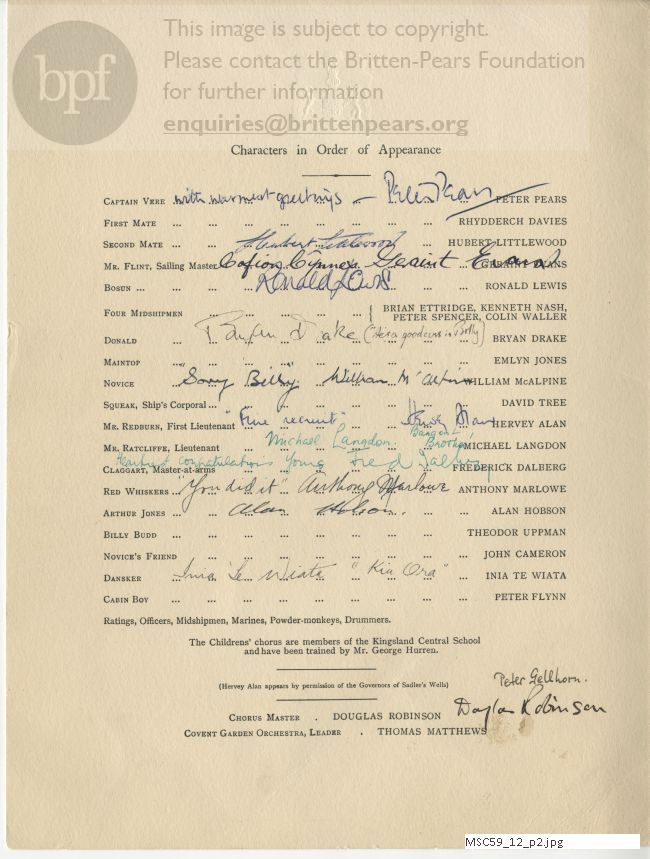 bpf
This image is subject to copyright.
Please contact the Britten-Pears Foundation
for further information
enquiries@brittenpears.org
Characters in Order of Appearance
CAPTAIN VERE with warmest greetings – Peter Pears PETER PEARS
FIRST MATE ... ... ... ... ... ... ... RHYDDERCH DAVIES
SECOND MATE ... ... Hubert Littlewood HUBERT LITTLEWOOD
MR. FLINT, SAILING MASTER Cofion Cynnes Geraint Evans GERAINT EVANS
BOSUN ... ... Ronald Lewis ... RONALD LEWIS
FOUR MIDSHIPMEN ... ... ... ... BRIAN ETTRIDGE, KENNETH NASH,
PETER SPENCER, COLIN WALLER
DONALD ... Bryan Drake (He's a good um is Billy) BRYAN DRAKE
MAINTOP ... ... ... ... ... ... ... EMLYN JONES
NOVICE ... "Sorry Billy" William McAlpine WILLIAM McALPINE
SQUEAK, Ship's Corporal ... ... ... ... ... ... DAVID TREE
MR. REDBURN, First Lieutenant "Fine recruit" Hervey Alan HERVEY ALAN
MR. RATCLIFFE, Lieutenant Michael Langdon. MICHAEL LANGDON
CLAGGART, Master-at-arms Heartiest Congratulations Young Fred Dalberg FREDERICK DALBERG
RED WHISKERS "You did it" Anthony Marlowe ANTHONY MARLOWE
ARTHUR JONES ... Alan Hobson. ... ALAN HOBSON
BILLY BUDD ... ... ... ... ... ... ... THEODOR UPPMAN
NOVICE'S FRIEND ... ... ... ... ... ... JOHN CAMERON
DANSKER ... Inia Te Wiata "Kia Ora" ... INIA TE WIATA
CABIN BOY ... ... ... ... ... ... ... PETER FLYNN
Ratings, Officers, Midshipmen, Marines, Powder-monkeys, Drummers.
The Childrens' chorus are members of the Kingsland Central School
and have been trained by Mr. George Hurren.
Peter Gellhorn.
(Hervey Alan appears by permission of the Governors of Sadler's Wells)
CHORUS MASTER . DOUGLAS ROBINSON Douglas Robinson
COVENT GARDEN ORCHESTRA, LEADER . THOMAS MATTHEWS
MSC59_12_p2.jpg